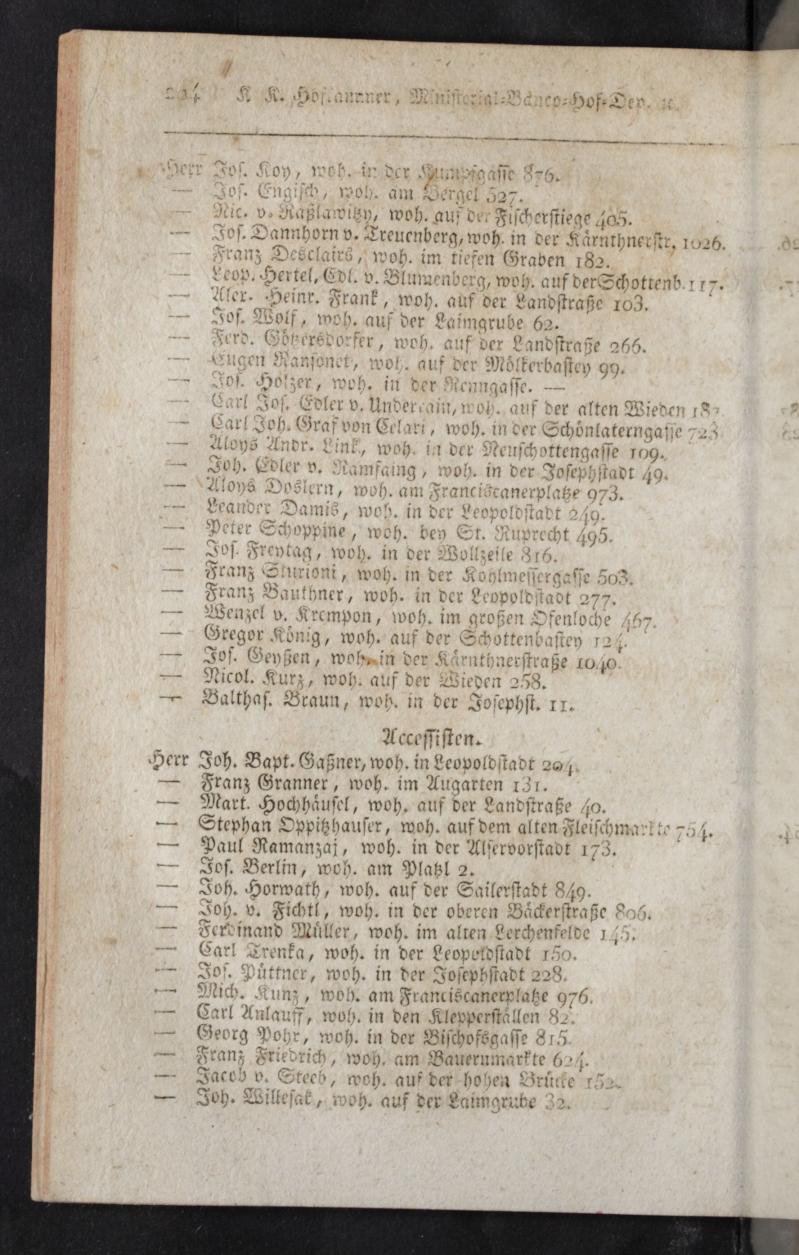 204 K. K. Hofkammer, Ministerial-Banco-Hof-Dep. ꝛc.
Herr Jos. Koy, woh. in der Kumpfgasse 876.
— Jos. Engisch, woh. am Bergel 527.
— Nic. v. Raßlawitzy, woh. auf der Fischerstiege 405.
— Jos. Dannhorn v. Treuenberg, woh. in der Kärnthnerstr. 1026.
— Franz Desclairs, woh. im tiefen Graben 182.
— Leop. Hertel, Edl. v. Blumenberg, woh. auf der Schottenb. 117.
— Alex. Heinr. Frank, woh. auf der Landstraße 103.
— Jos. Wolf, woh. auf der Laimgrube 62.
— Ferd. Götzersdorfer, woh. auf der Landstraße 266.
— Eugen Ransonet, woh. auf der Mölkerbastey 99.
— Jos. Holzer, woh. in der Renngasse. —
— Carl Jos. Edler v. Underrain, woh. auf der alten Wieden
— Carl Joh. Graf von Celari, woh. in der Schönlaterngasse 723
— Aloys Andr. Link, woh. in der Neuschottengasse 109.
— Joh. Edler v. Ramfaing, woh. in der Josephstadt 49.
— Aloys Doslern, woh. am Franciscanerplatze 973.
— Leander Damis, woh. in der Leopoldstadt 249.
— Peter Schoppine, woh. bey St. Ruprecht 495.
— Jos. Freytag, woh. in der Wollzeile 816.
— Franz Sturioni, woh. in der Kohlmessergasse 503.
— Franz Bauthner, woh. in der Leopoldstadt 277.
— Wenzel v. Krempon, woh. im großen Ofenloche 467.
— Gregor König, woh. auf der Schottenbastey 124.
— Jos. Geyßen, woh. in der Kärnthnerstraße 1040.
— Nicol. Kurz, woh. auf der Wieden 258.
— Balthas. Braun, woh. in der Josephst. 11.
Accessisten.
Herr Joh. Bapt. Gaßner, woh. in Leopoldstadt 204.
— Franz Granner, woh. im Augarten 131.
— Mart. Hochhäusel, woh. auf der Landstraße 40.
— Stephan Oppitzhauser, woh. auf dem alten Fleischmarkte 754.
— Paul Ramanzaj, woh. in der Alservorstadt 173.
— Jos. Berlin, woh. am Platzl 2.
— Joh. Horwath, woh. auf der Sailerstadt 849.
— Joh. v. Fichtl, woh. in der oberen Bäckerstraße 806.
— Ferdinand Müller, woh. im alten Lerchenfelde 145.
— Carl Trenka, woh. in der Leopoldstadt 150.
— Jos. Püttner, woh. in der Josephstadt 228.
— Mich. Kunz, woh. am Franciscanerplatze 976.
— Carl Anlauff, woh. in den Klepperställen 82.
— Georg Pohr, woh. in der Bischofsgasse 815.
— Franz Friedrich, woh. am Bauernmarkte 624.
— Jacob v. Steeb, woh. auf der hohen Brücke 152.
— Joh. Willesak, woh. auf der Laimgrube 32.